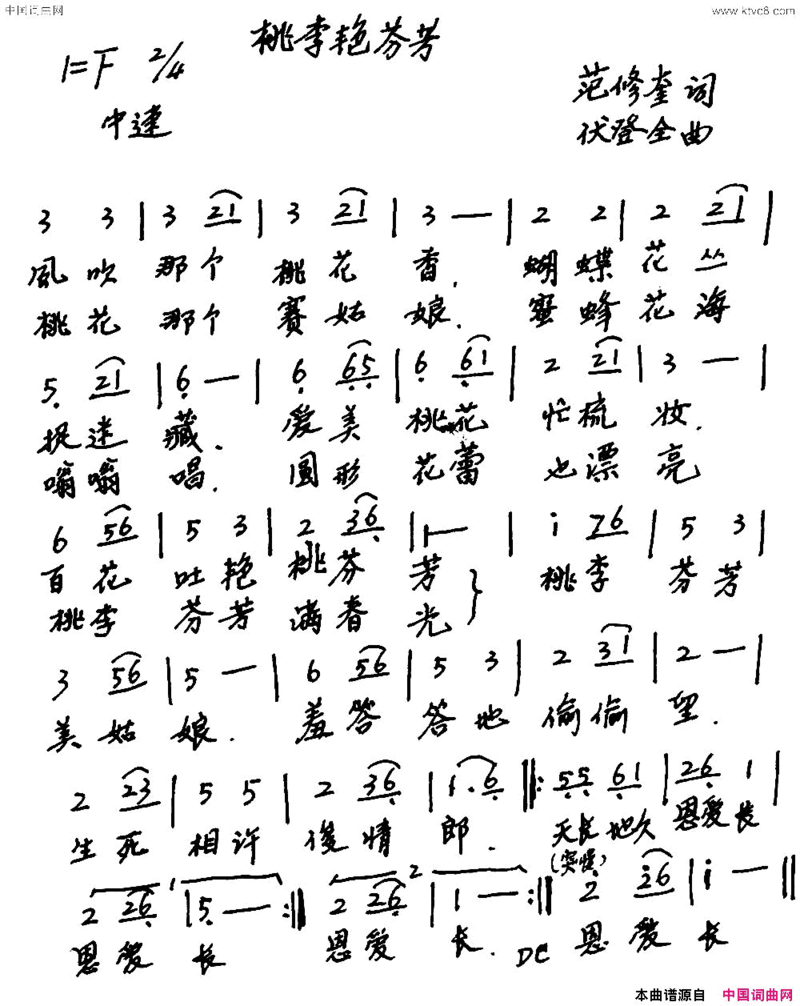 中国词曲网 www.ktvc8.com
桃李艳芬芳
1=F 2/4
中速
范修奎 词
伏登全 曲
3 3 | 3 21 | 3 21 | 3 — | 2 2 | 2 21 |
風吹 那个 桃花 香. 蝴蝶 花丛
桃花 那个 赛姑 娘. 蜜蜂 花海
5 21 | 6 — | 6 65 | 6 61 | 2 21 | 3 — |
捉迷 藏. 爱美 桃花 忙梳 妆.
嗡嗡 唱. 圆形 花蕾 也漂 亮
6 56 | 5 3 | 2 36 | 1 — | i 76 | 5 3 |
百花 吐艳 桃芬 芳 } 桃李 芬芳
桃李 芬芳 满春 光
3 56 | 5 — | 6 56 | 5 3 | 2 31 | 2 — |
美姑 娘. 羞答 答地 偷偷 望.
2 23 | 5 5 | 2 36 | 1. 6 ‖: 55 61 | 26 1 |
生死 相许 俊情 郎. 天长地久 恩爱长
(突慢)
2 26 | 5 — :‖ 2 26 | 1 — :‖ 2 26 | i — ‖
恩爱 长 恩爱 长. DC 恩爱 长
本曲谱源自 中国词曲网